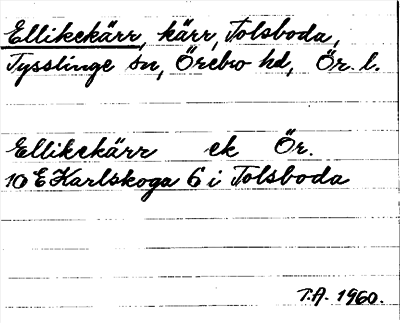 Ellikekärr, kärr, Tolsboda,
Tysslinge sn, Örebro hd, Ör. l.
Ellikekärr ek Ör.
10 E Karlskoga 6 i Tolsboda
T.A. 1960.